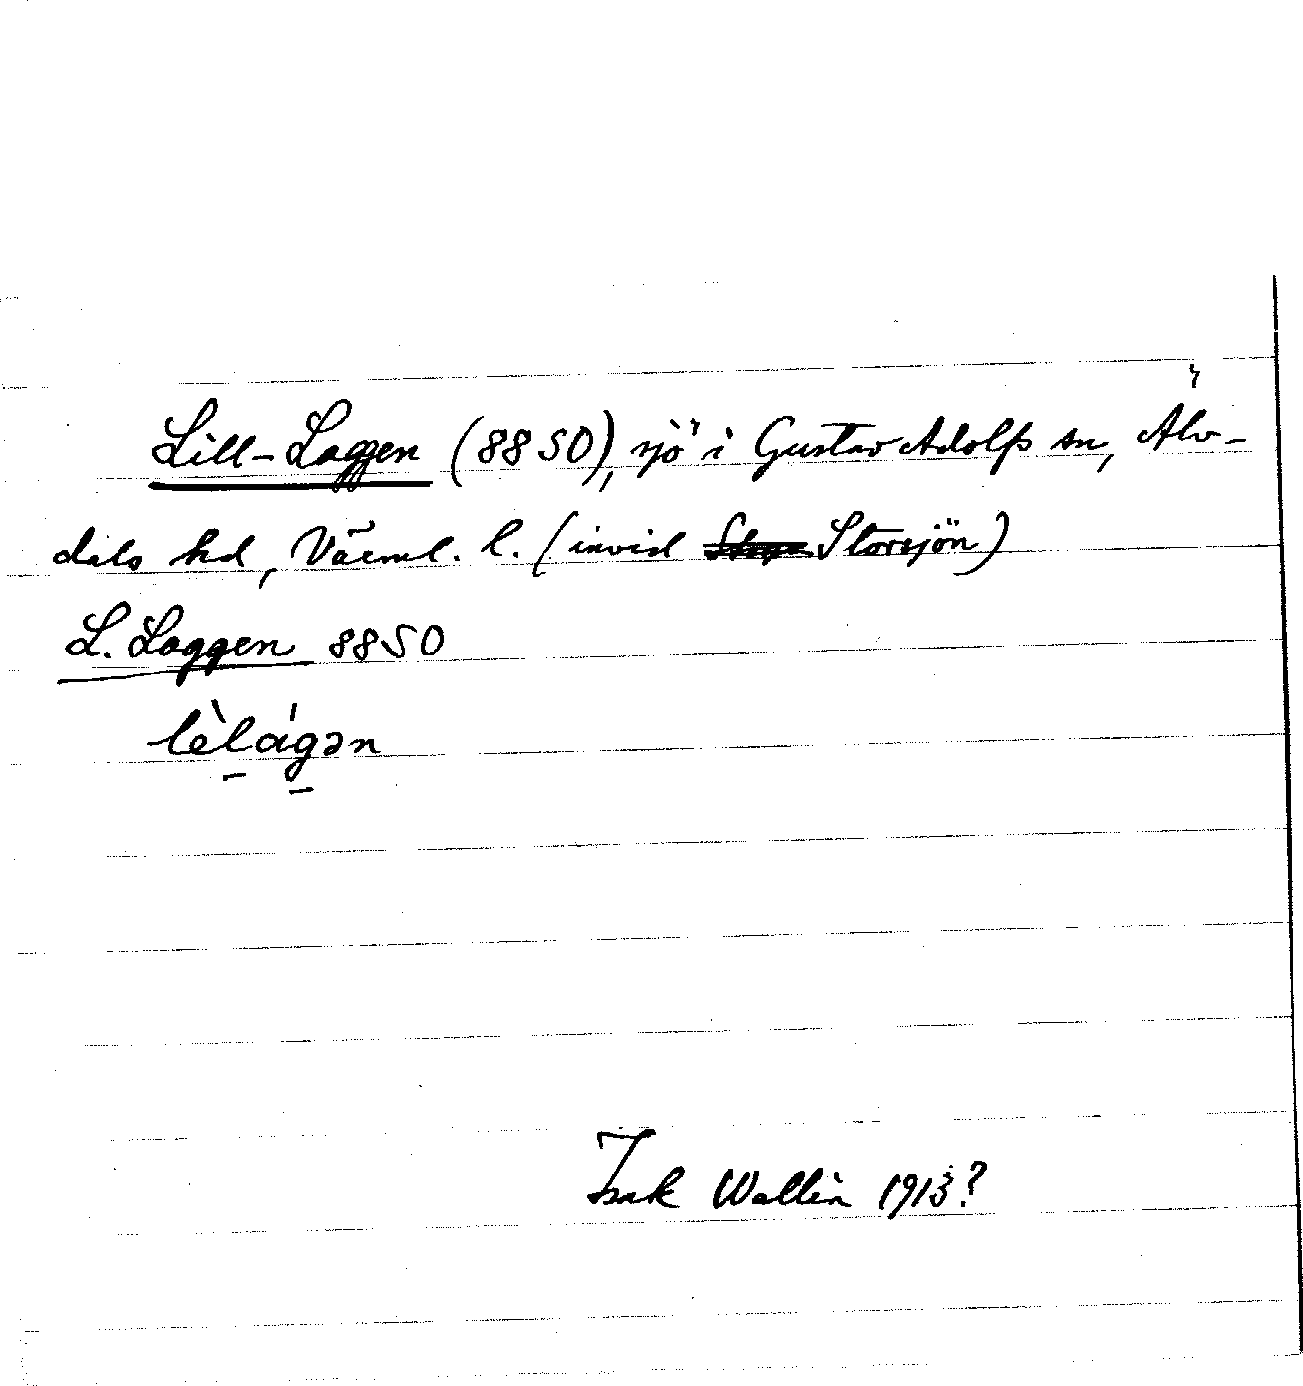 Lill-Laggen (8850), sjö i Gustav Adolfs sn, Älv-
dals hd, Värml. l. (invid Storsjön)
L. Laggen 8850
lèlágən
Isak Wallin 1913?